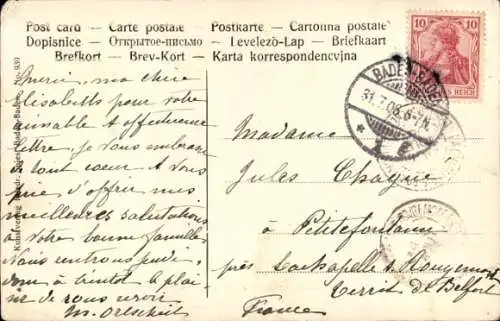 Post card – Carte postale – Postkarte – Cartolina postale –
Dopisnice – Открытое-письмо – Levelezö-Lap – Briefkaart –
Brefkort – Brev-Kort – Karta korrespondencvjna
10 10
REICH
BADEN-BADEN
31.7.06.6-7N.
Nr. 939
Merci, ma chère
Elisabeth pour votre
aimable & affectueuse
lettre, je vous embrasse
de tout cœur. A vous
prie d'offrir mes
meilleures salutations
à votre bonne famille.
Nous rentrons
à bientôt le plai-
sir de vous revoir
M. Ortscheit
Madame
Jules Chagué
à
Petitefontaine
près Lachapelle s Rougemont
Territ de Belfort
France